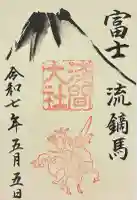 富士流鏑馬
浅間大社
令和七年五月五日